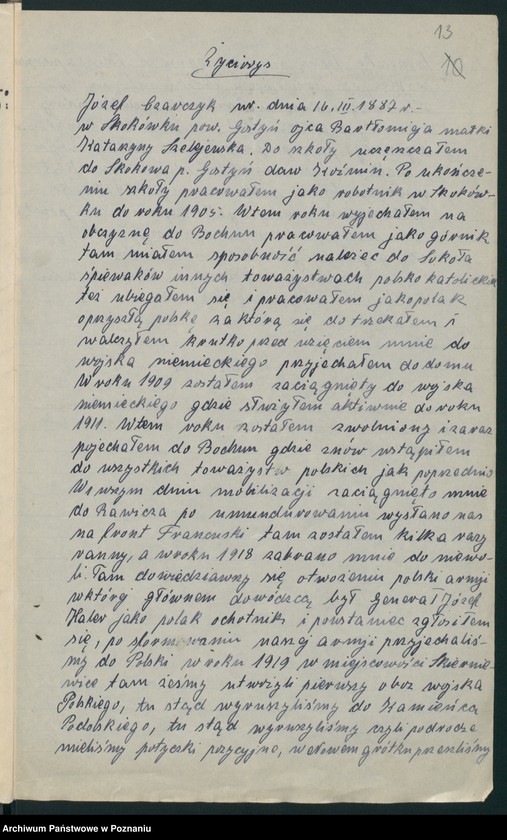 13
10
Życiorys
Józef Czawczyk ur. dnia 16.III.1887 r.-
w Skokówku pow. Gostyń ojca Bartłomieja matki
Katarzyny Szelejewska. Do szkoły uczęszczałem
do Skokowa p. Gostyń daw
Po ukończe-
niu szkoły pracowałem jako robotnik w Skoków-
ku do roku 1905. Wtem roku wyjechałem na
obczyznę do Bochun pracowałem jako górnik
tam miałem sposobność należec do Sokoła
śpiewaków innych toważystwach polsko katolickich
też ubiegałem się i pracowałem jakopolak
oprzyszłą polskę za którą się do trzekałem i
walczyłem krutko przed wzięciem mnie do
wojska niemieckiego przyjechałem do domu
W roku 1909 zostałem zaciągnięty do wojska
niemieckiego gdzie służyłem aktiwnie do roku
1911. Wtem roku zostałem zwolniony i zaraz
pojechałem do Bochun gdzie znów wstąpiłem
do wszystkich toważystw polskich jak poprzednio
W 1wszym dniu mobilizacji zaciągnięto mnie
do Rawicza po umundurowaniu wysłano nas
na front Francuski tam zostałem kilka razy
ranny, a wroku 1918 zabrano mnie do niewo-
li. Tam dowiedziawszy się otwożeniu polski armji
wktórej głównem dowódzcą był Generał Józef
Haler jako polak ochotnik i powstaniec zgłosiłem
się, po sformowaniu naszej armji przyjechaliś-
my do Polski w roku 1919 w miejscowości Skiernie-
wice tam żeśmy utworzyli pierwszy oboz wojska
Polskiego, tu stąd wyruszyliśmy do Kamieńca
Podolskiego, tu stąd wyruszyliśmy czyli podrodze
mieliśmy potyczki pozycyjne, w gródku przeszliśmy
Archiwum Państwowe w Poznaniu